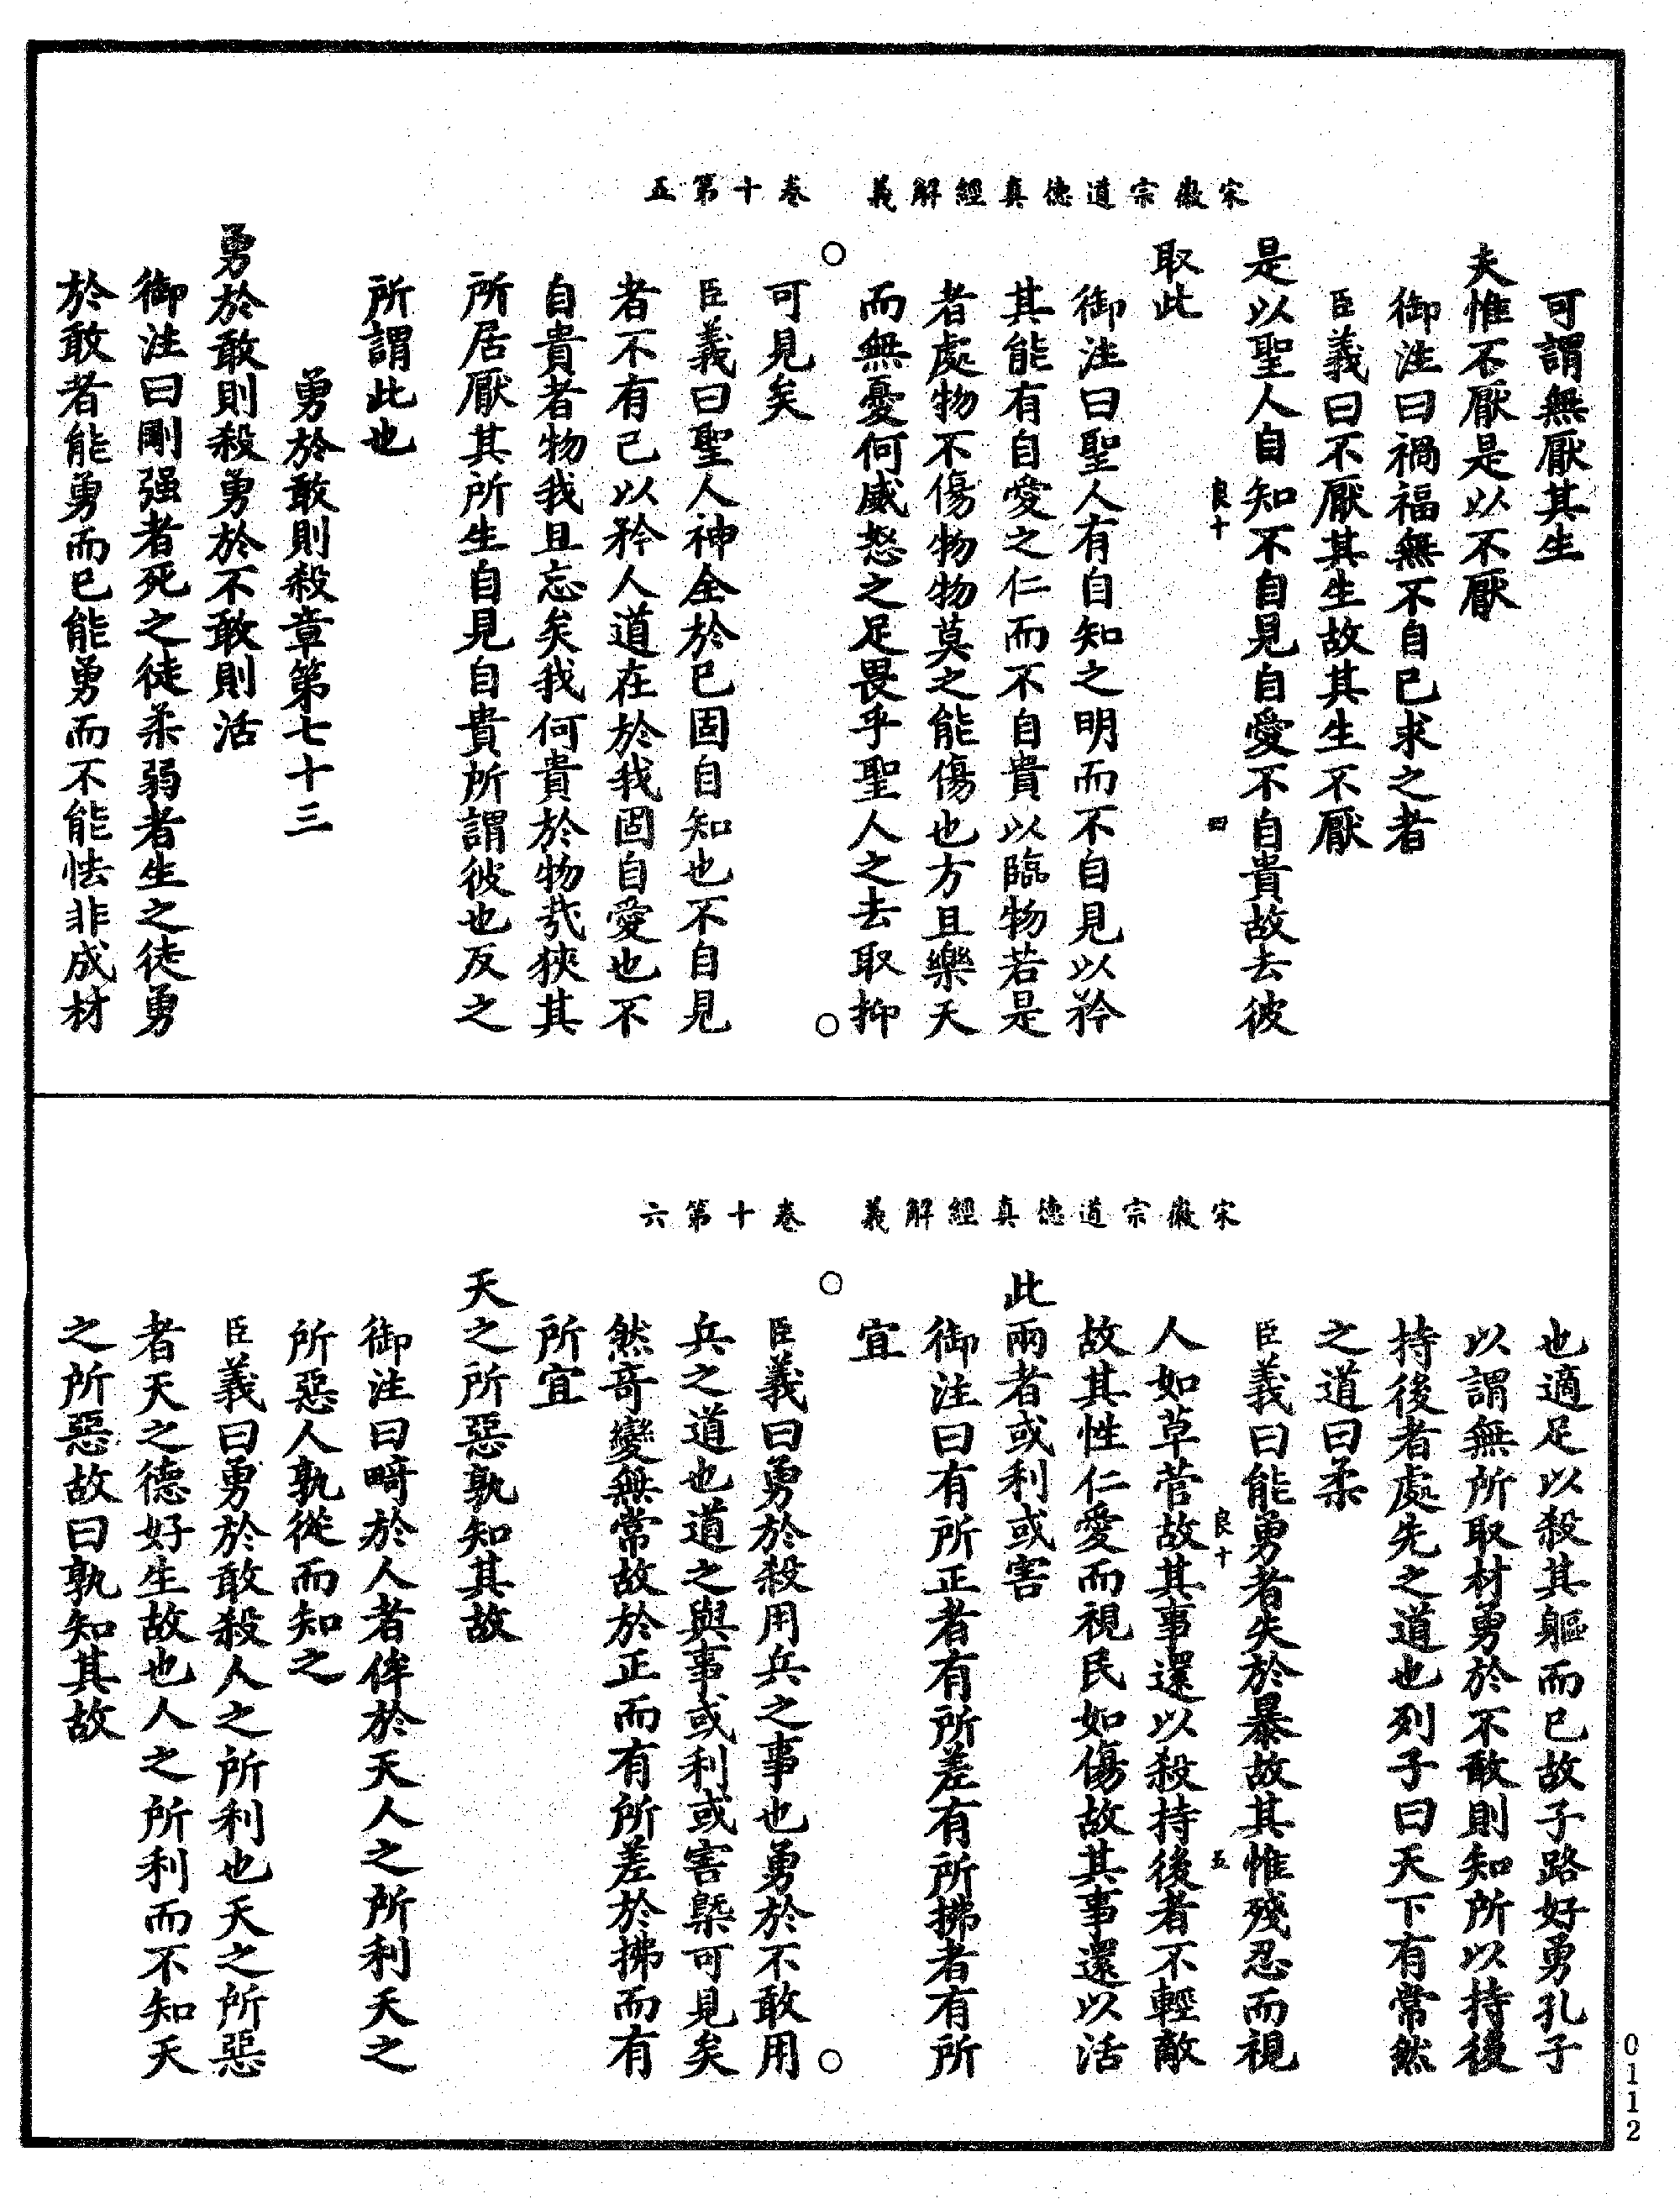 宋徽宗道德真經解義　卷十第五
可謂無厭其生
夫惟不厭是以不厭
御注曰禍福無不自已求之者
臣義曰不厭其生故其生不厭
是以聖人自知不自見自愛不自貴故去彼
良十　四
取此
御注曰聖人有自知之明而不自見以矜
其能有自愛之仁而不自貴以臨物若是
者處物不傷物物莫之能傷也方且樂天
而無憂何威怒之足畏乎聖人之去取抑
可見矣
臣義曰聖人神全於已固自知也不自見
者不有己以矜人道在於我固自愛也不
自貴者物我且忘矣我何貴於物哉狹其
所居厭其所生自見自貴所謂彼也反之
所謂此也
勇於敢則殺章第七十三
勇於敢則殺勇於不敢則活
御注曰剛强者死之徒柔弱者生之徒勇
於敢者能勇而已能勇而不能怯非成材
宋徽宗道德真經解義　卷十第六
也適足以殺其軀而已故子路好勇孔子
以謂無所取材勇於不敢則知所以持後
持後者處先之道也列子曰天下有常然
之道曰柔
臣義曰能勇者失於暴故其惟殘忍而視
良十　五
人如草菅故其事還以殺持後者不輕敵
故其性仁愛而視民如傷故其事還以活
此兩者或利或害
御注曰有所正者有所差有所拂者有所
宜
臣義曰勇於殺用兵之事也勇於不敢用
兵之道也道之與事或利或害槩可見矣
然竒變無常故於正而有所差於拂而有
所宜
天之所惡孰知其故
御注曰畸於人者侔於天人之所利天之
所惡人孰從而知之
臣義曰勇於敢殺人之所利也天之所惡
者天之德好生故也人之所利而不知天
之所惡故曰孰知其故
0112